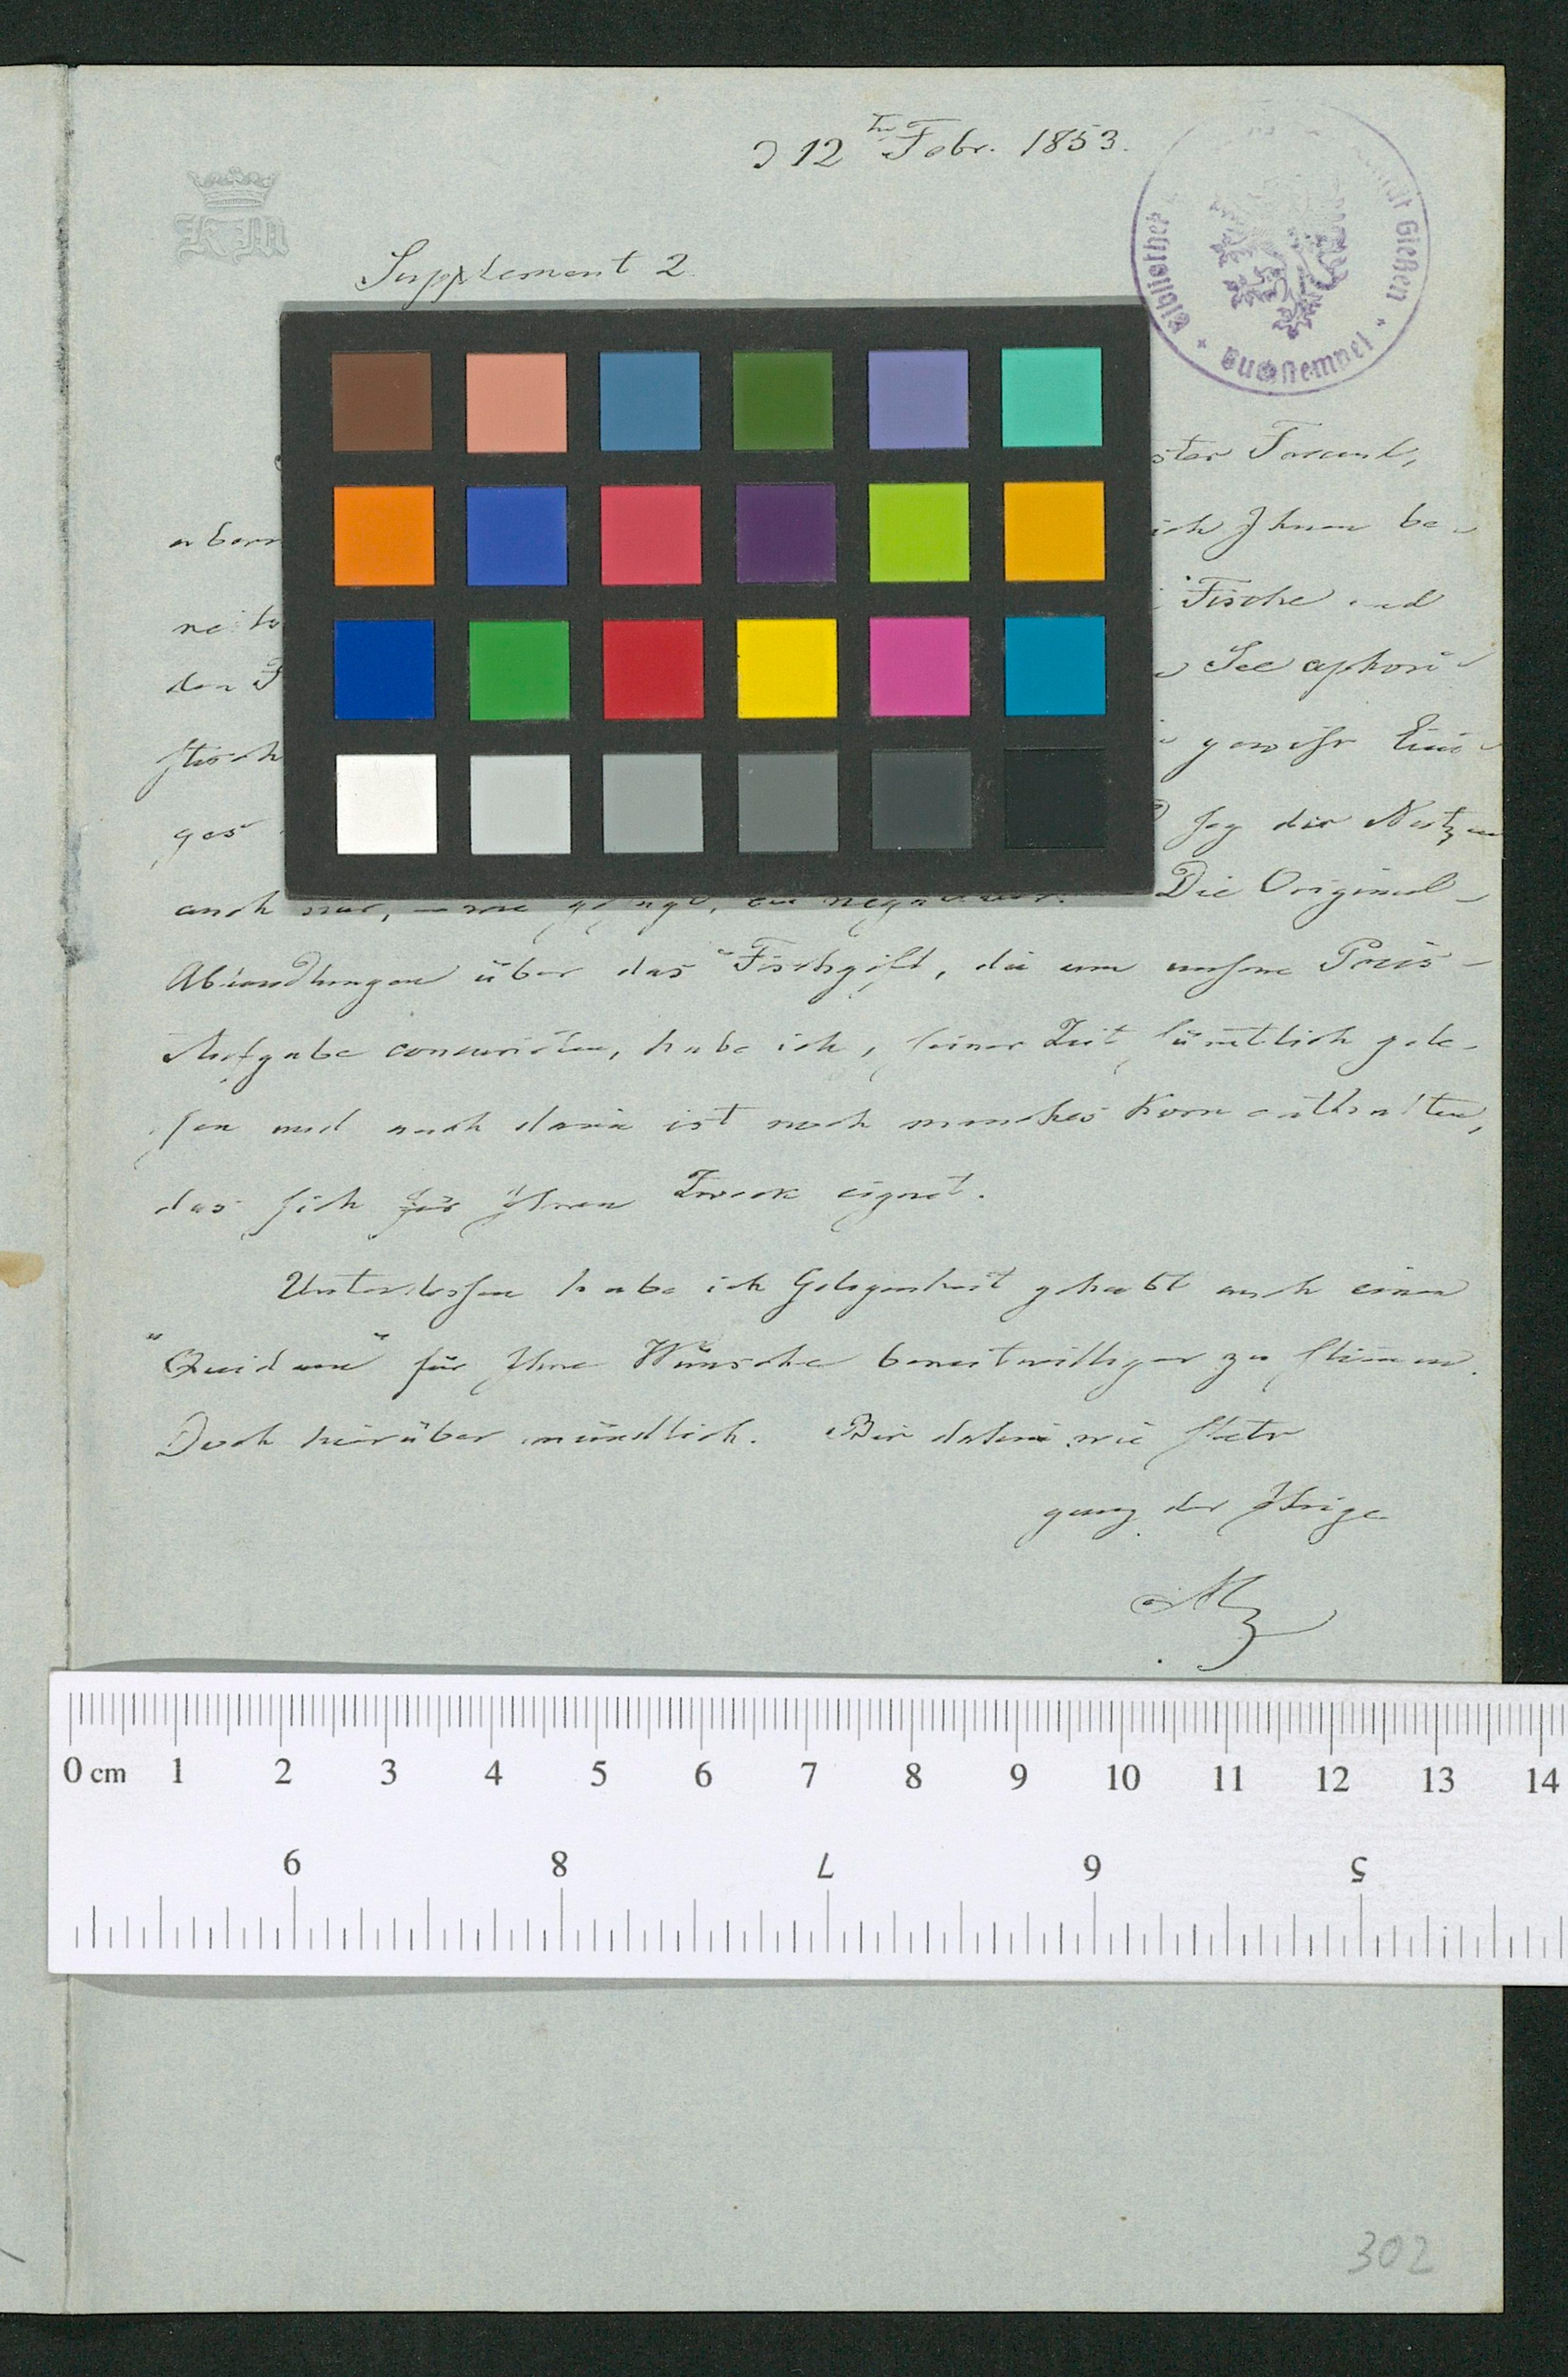 D 12ten Febr. 1853.
KM
Supplement 2
Bibliothek Gießen
Buchstempel
ster Freund,
aberm ich Ihnen be-
reits Fische und
den F See aphori-
stisch gewiss Eini-
ges sey der Nutzen
auch nur, ein negativer. Die Original-
Abhandlungen über das Fischgift, die um unsere Preis-
Aufgabe concurirten, habe ich, seiner Zeit, sämtlich gele-
sen und auch darin ist noch manches Korn enthalten,
das sich für Ihren Zweck eignet.
Unterdessen habe ich Gelegenheit gehabt auch einen
"Quidam" für Ihre Wünsche bereitwilliger zu stimmen.
Doch hierüber mündlich. Bis dahin wie stets
ganz der Ihrige
0 cm 1 2 3 4 5 6 7 8 9 10 11 12 13 14
9 8 7 6 5
302